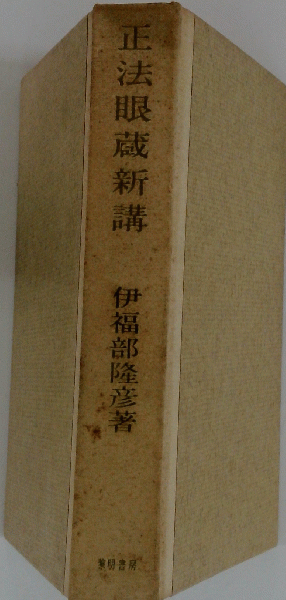 正法眼蔵新講
伊福部隆彦著
黎明書房